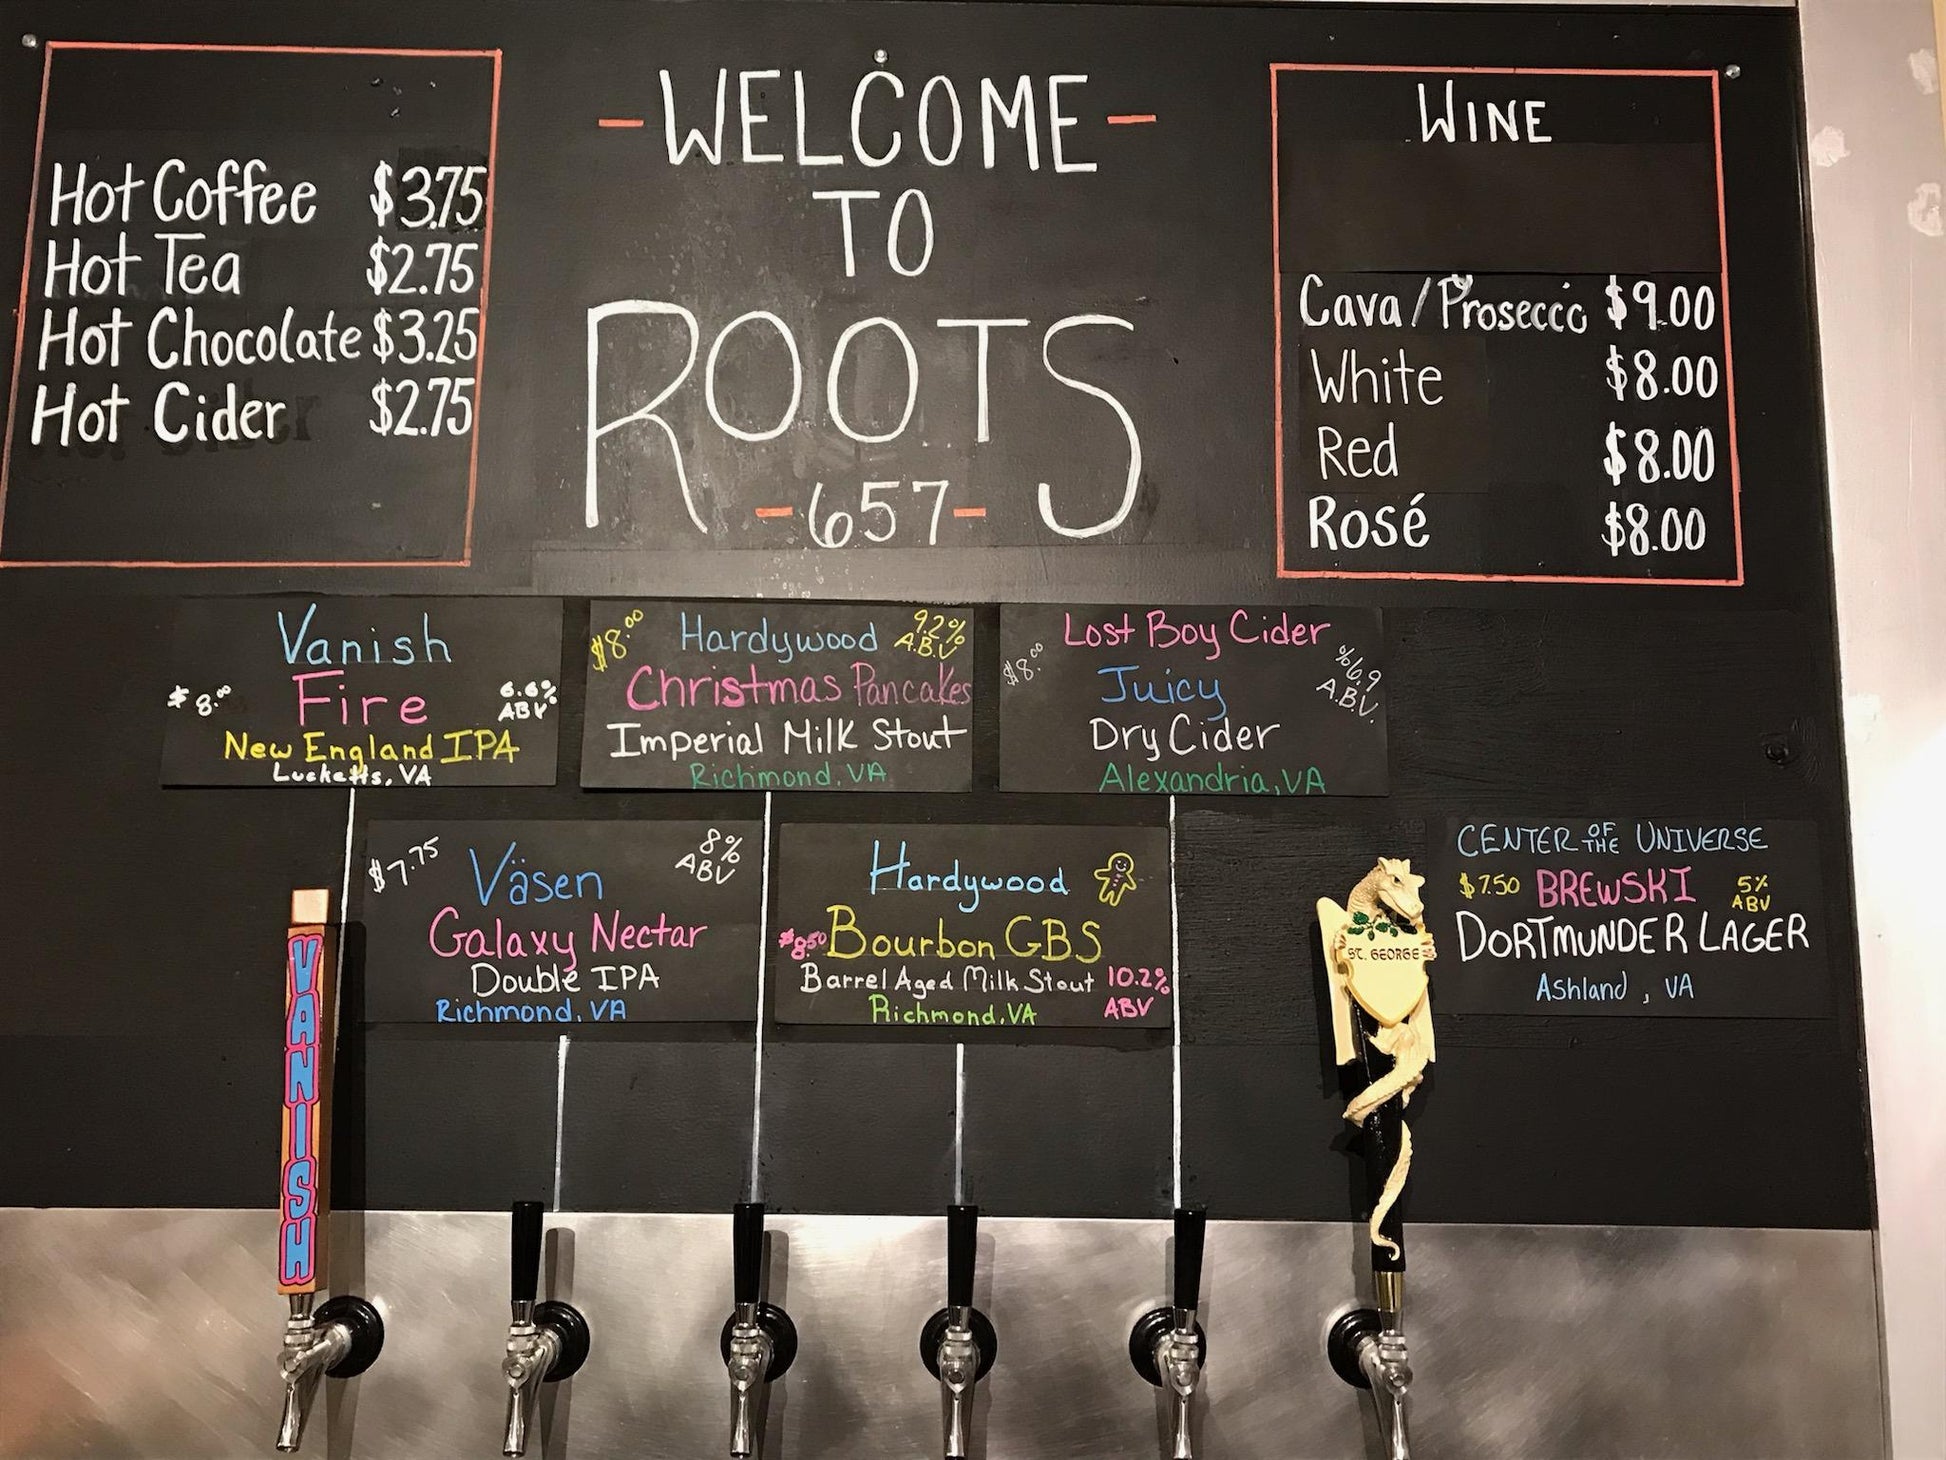 -WELCOME-
TO
ROOTS
-657-
Hot Coffee $3.75
Hot Tea $2.75
Hot Chocolate $3.25
Hot Cider $2.75
WINE
Cava/Prosecco $9.00
White $8.00
Red $8.00
Rosé $8.00
Vanish
$8.00 Fire 6.6% ABV
New England IPA
Lucketts, VA
$8.00 Hardywood 9.2% A.B.V
Christmas Pancakes
Imperial Milk Stout
Richmond, VA
Lost Boy Cider
$8.00 Juicy %6.9 A.B.V.
Dry Cider
Alexandria, VA
$7.75 Väsen 8% ABV
Galaxy Nectar
Double IPA
Richmond, VA
Hardywood
$8.50 Bourbon GBS
Barrel Aged Milk Stout 10.2% ABV
Richmond, VA
CENTER OF THE UNIVERSE
$7.50 BREWSKI 5% ABV
DORTMUNDER LAGER
Ashland, VA
VANISH
ST. GEORGE